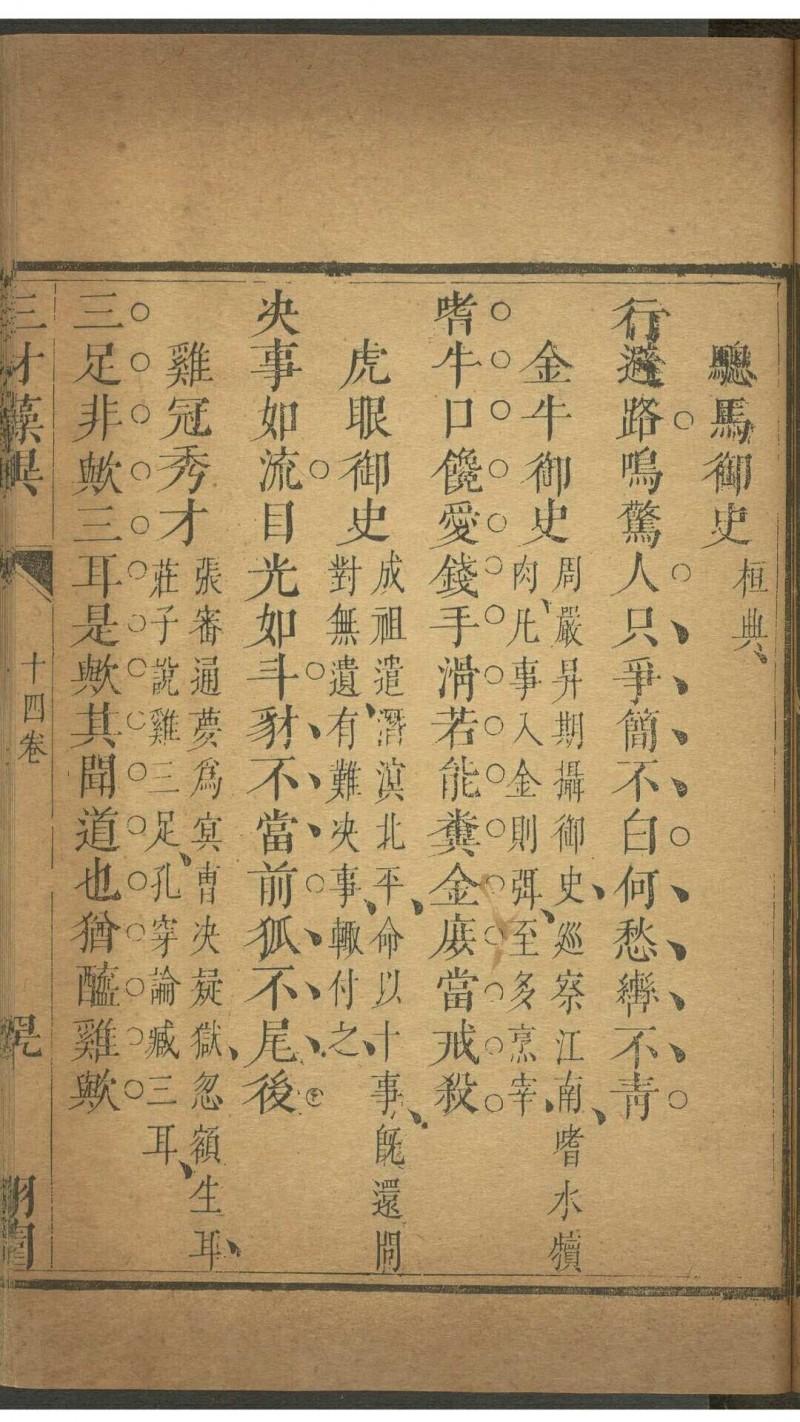 驄馬御史桓典
行遶路鳴驚人只爭簡不白何愁轡不青
金牛御史周嚴昇期攝御史廵察江南嗜水犢
肉凡事入金則弭至多烹宰
嗜牛口饞愛錢手滑若能糞金庶當戒殺
虎眼御史成祖遣濳滇北平命以十事旣還問
對無遺有難决事輙付之
决事如流目光如斗豺不當前狐不尾後
雞冠秀才張審通夢爲㝠曹决疑獄忽額生耳
莊子說雞三足孔穿論臧三耳
三足非歟三耳是歟其聞道也猶醯雞歟
三才藻異
十四卷